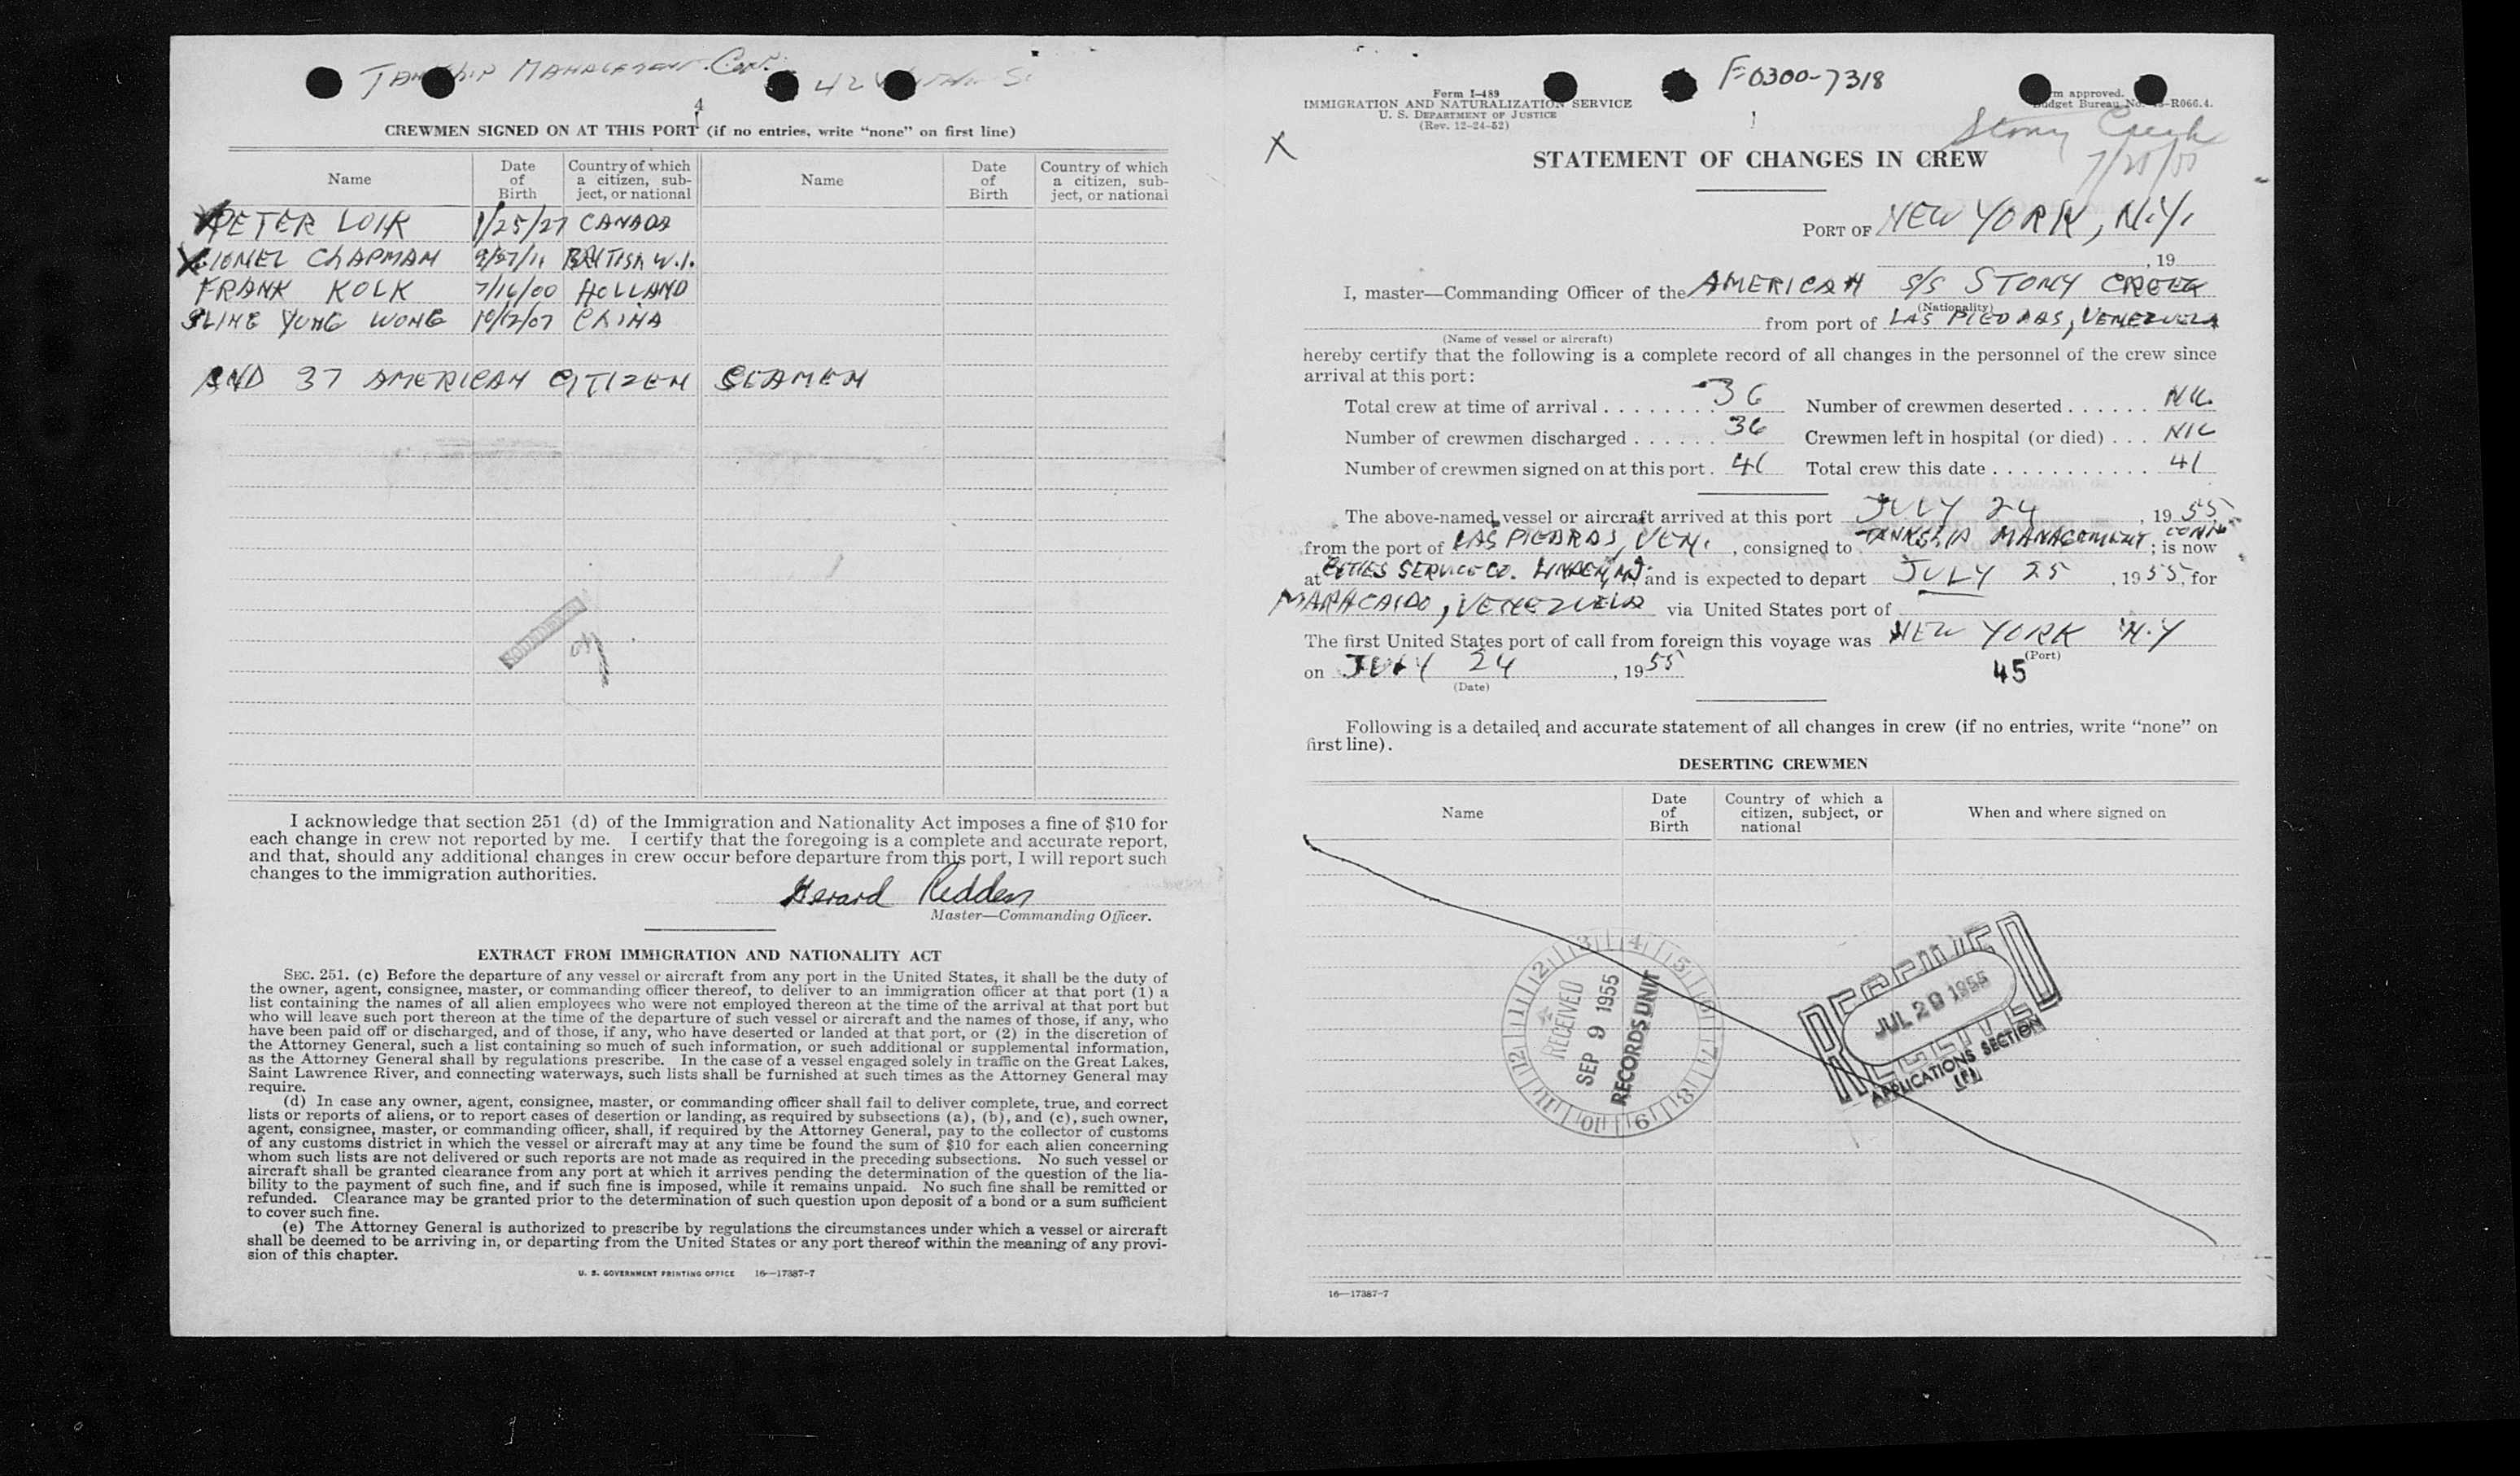 4
CREWMEN SIGNED ON AT THIS PORT (if no entries, write “none” on first line)
Name Date of Birth Country of which a citizen, subject, or national Name Date of Birth Country of which a citizen, sub-ject, or national
PETER LOIK 1/25/27 CANADA
LIONEL CHAPMAN 9/27/11 BRITISH W.I.
FRANK KOLK 7/16/00 HOLLAND
YUNG WONG 10/12/07 CHINA
AND 37 AMERICAN CITIZEN SEAMEN
I acknowledge that section 251 (d) of the Immigration and Nationality Act imposes a fine of $10 for
each change in crew not reported by me. I certify that the foregoing is a complete and accurate report,
and that, should any additional changes in crew occur before departure from this port, I will report such
changes to the immigration authorities.
Gerard Redden
Master—Commanding Officer.
EXTRACT FROM IMMIGRATION AND NATIONALITY ACT
SEC. 251. (c) Before the departure of any vessel or aircraft from any port in the United States, it shall be the duty of
the owner, agent, consignee, master, or commanding officer thereof, to deliver to an immigration officer at that port (1) a
list containing the names of all alien employees who were not employed thereon at the time of the arrival at that port but
who will leave such port thereon at the time of the departure of such vessel or aircraft and the names of those, if any, who
have been paid off or discharged, and of those, if any, who have deserted or landed at that port, or (2) in the discretion of
the Attorney General, such a list containing so much of such information, or such additional or supplemental information,
as the Attorney General shall by regulations prescribe. In the case of a vessel engaged solely in traffic on the Great Lakes,
Saint Lawrence River, and connecting waterways, such lists shall be furnished at such times as the Attorney General may
require.
(d) In case any owner, agent, consignee, master, or commanding officer shall fail to deliver complete, true, and correct
lists or reports of aliens, or to report cases of desertion or landing, as required by subsections (a), (b), and (c), such owner,
agent, consignee, master, or commanding officer, shall, if required by the Attorney General, pay to the collector of customs
of any customs district in which the vessel or aircraft may at any time be found the sum of $10 for each alien concerning
whom such lists are not delivered or such reports are not made as required in the preceding subsections. No such vessel or
aircraft shall be granted clearance from any port at which it arrives pending the determination of the question of the lia-
bility to the payment of such fine, and if such fine is imposed, while it remains unpaid. No such fine shall be remitted or
refunded. Clearance may be granted prior to the determination of such question upon deposit of a bond or a sum sufficient
to cover such fine.
(e) The Attorney General is authorized to prescribe by regulations the circumstances under which a vessel or aircraft
shall be deemed to be arriving in, or departing from the United States or any port thereof within the meaning of any provi-
sion of this chapter.
U. S. GOVERNMENT PRINTING OFFICE 16—17387-7
F-0300-7318
Form I-489
IMMIGRATION AND NATURALIZATION SERVICE
U. S. DEPARTMENT OF JUSTICE
(Rev. 12-24-52)
approved.
Budget Bureau No. -R066.4.
Stony Creek
X
STATEMENT OF CHANGES IN CREW
PORT OF NEW YORK, N.Y.
, 19
I, master—Commanding Officer of the AMERICAN S/S STONY CREEK
(Nationality)
from port of LAS PIEDRAS, VENEZUELA
(Name of vessel or aircraft)
hereby certify that the following is a complete record of all changes in the personnel of the crew since
arrival at this port:
Total crew at time of arrival 36 Number of crewmen deserted NIL
Number of crewmen discharged 36 Crewmen left in hospital (or died) NIL
Number of crewmen signed on at this port 41 Total crew this date 41
The above-named vessel or aircraft arrived at this port JULY 24, 1955
from the port of LAS PIEDRAS, VEN., consigned to TANKSHIP MANAGEMENT ; is now
at CITIES SERVICE CO. LINDEN, NJ. and is expected to depart JULY 25, 1955, for
MARACAIBO, VENEZUELA via United States port of
The first United States port of call from foreign this voyage was NEW YORK N.Y
(Port)
on JULY 24, 1955
(Date)
45
Following is a detailed and accurate statement of all changes in crew (if no entries, write “none” on
first line).
DESERTING CREWMEN
Name Date of Birth Country of which a citizen, subject, or national When and where signed on
RECEIVED
SEP 9 1955
RECORDS UNIT
RECEIVED
JUL 29 1955
APPLICATIONS SECTION
16—17387-7